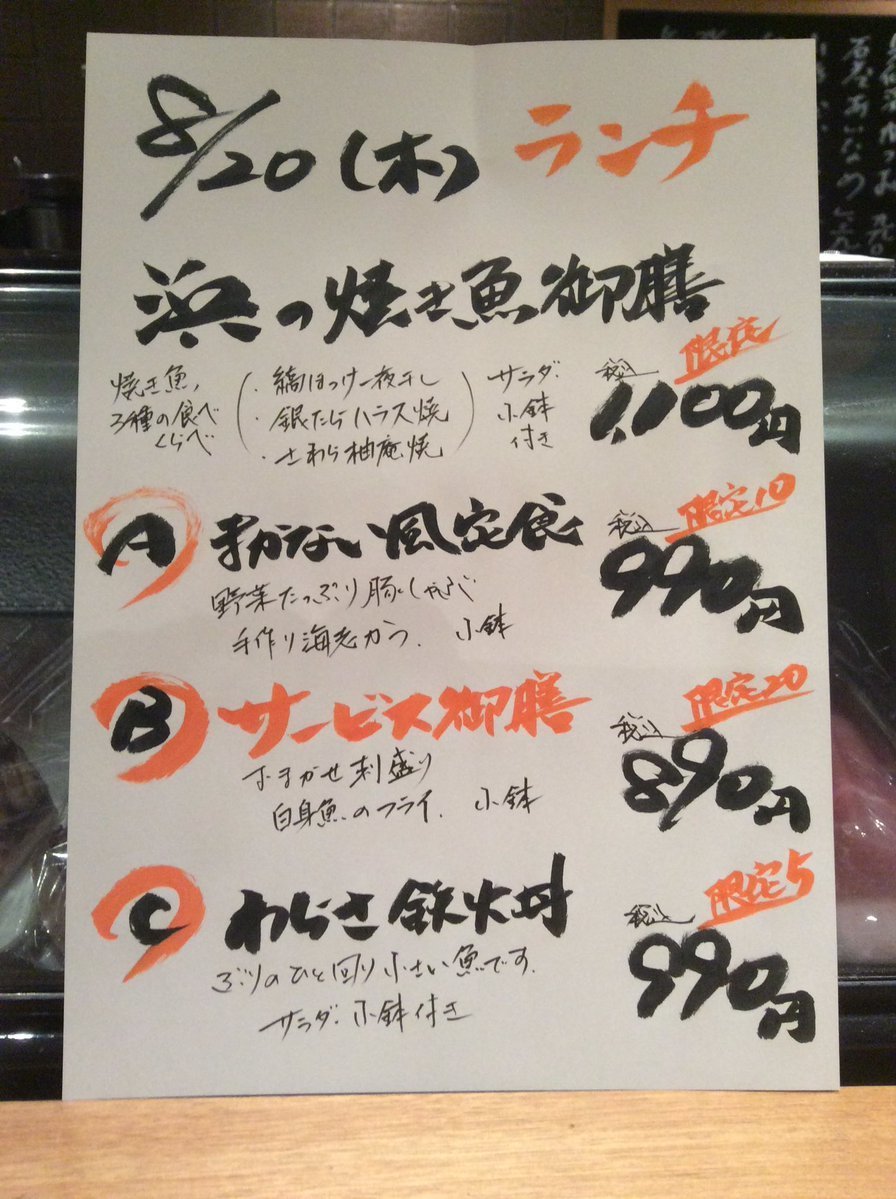 8/20(木) ランチ
浜の焼き魚御膳
限定
税込
1,100円
焼き魚,
3種の食べ
くらべ
・縞ほっけ一夜干し
・銀だらハラス焼
・さわら柚庵焼
サラダ・
小鉢
付き
A まかない風定食
限定10
税込
990円
野菜たっぷり豚しゃぶ
手作り海老カツ. 小鉢
B サービス御膳
限定20
税込
890円
おまかせ刺盛り
白身魚のフライ. 小鉢
C わらさ鉄火丼
限定5
税込
990円
ぶりのひと回り小さい魚です.
サラダ・小鉢付き